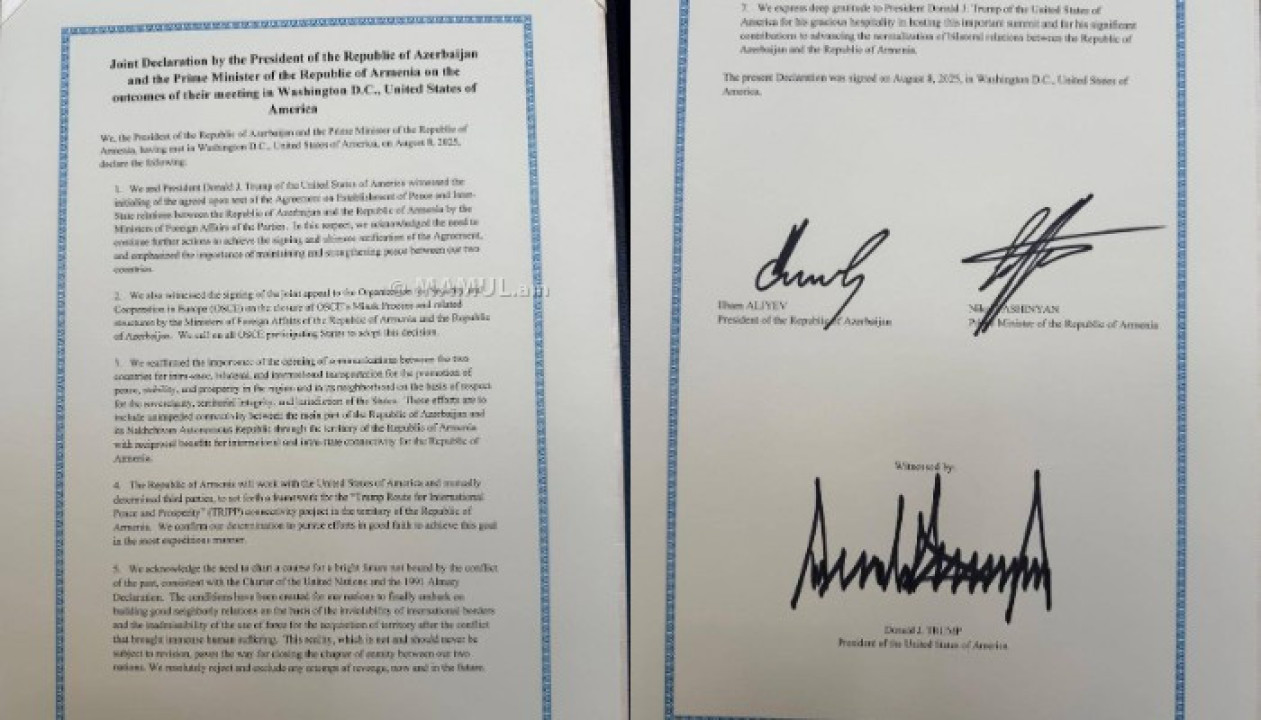 Joint Declaration by the President of the Republic of Azerbaijan
and the Prime Minister of the Republic of Armenia on the
outcomes of their meeting in Washington D.C., United States of
America
We, the President of the Republic of Azerbaijan and the Prime Minister of the Republic of
Armenia, having met in Washington D.C., United States of America, on August 8, 2025,
declare the following:
1. We and President Donald J. Trump of the United States of America witnessed the
initialing of the agreed upon text of the Agreement on Establishment of Peace and Inter-
State relations between the Republic of Azerbaijan and the Republic of Armenia by the
Ministers of Foreign Affairs of the Parties. In this respect, we acknowledged the need to
continue further actions to achieve the signing and ultimate ratification of the Agreement,
and emphasized the importance of maintaining and strengthening peace between our two
countries.
© MAMUL.am
2. We also witnessed the signing of the joint appeal to the Organization
Cooperation in Europe (OSCE) on the closure of OSCE's Minsk Process and related
structures by the Ministers of Foreign Affairs of the Republic of Armenia and the Republic
of Azerbaijan. We call on all OSCE participating States to adopt this decision.
3. We reaffirmed the importance of the opening of communications between the two
countries for intra-state, bilateral, and international transportation for the promotion of
peace, stability, and prosperity in the region and in its neighborhood on the basis of respect
for the sovereignty, territorial integrity, and jurisdiction of the States. These efforts are to
include unimpeded connectivity between the main part of the Republic of Azerbaijan and
its Nakhchivan Autonomous Republic through the territory of the Republic of Armenia
with reciprocal benefits for international and intra-state connectivity for the Republic of
Armenia.
4. The Republic of Armenia will work with the United States of America and mutually
determined third parties, to set forth a framework for the "Trump Route for International
Peace and Prosperity" (TRIPP) connectivity project in the territory of the Republic of
Armenia. We confirm our determination to pursue efforts in good faith to achieve this goal
in the most expeditious manner.
5. We acknowledge the need to chart a course for a bright future not bound by the conflict
of the past, consistent with the Charter of the United Nations and the 1991 Almaty
Declaration. The conditions have been created for our nations to finally embark on
building good neighborly relations on the basis of the inviolability of international borders
and the inadmissibility of the use of force for the acquisition of territory after the conflict
that brought immense human suffering. This reality, which is not and should never be
subject to revision, paves the way for closing the chapter of enmity between our two
nations. We resolutely reject and exclude any attempt of revenge, now and in the future.
7. We express deep gratitude to President Donald J. Trump of the United States of
America for his gracious hospitality in hosting this important summit and for his significant
contributions to advancing the normalization of bilateral relations between the Republic of
Azerbaijan and the Republic of Armenia.
The present Declaration was signed on August 8, 2025, in Washington D.C., United States of
America.
Ilham ALIYEV
President of the Republic of Azerbaijan
Nikol PASHINYAN
Prime Minister of the Republic of Armenia
Witnessed by:
Donald J. TRUMP
President of the United States of America